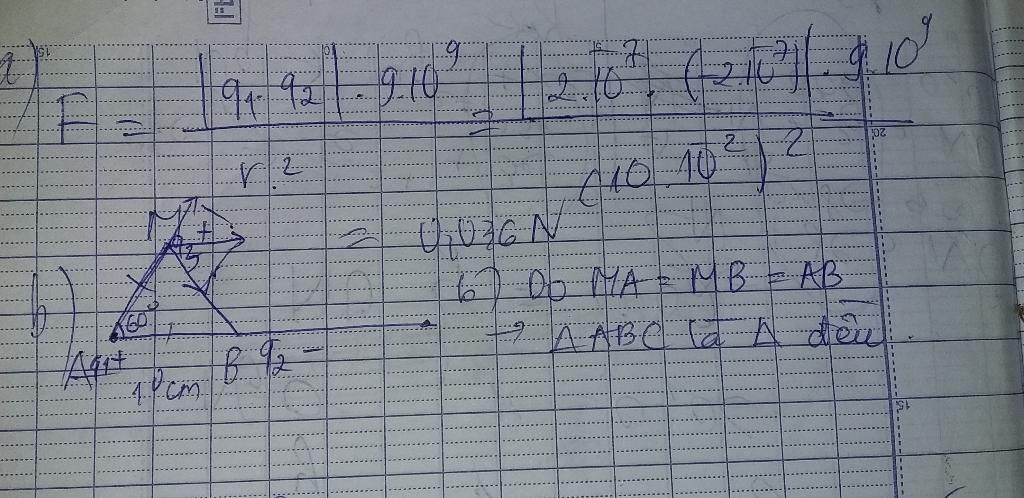 a)
F = |q1.q2|.9.10^9 / r.^2 = |2.10^-7.(-2.10^-7)|.9.10^9 / (10.10^-2)^2
= 0,036 N
b)
M + q3
60°
A q1+ B q2 -
10 cm
b) Do MA = MB = AB
→ Δ ABC là Δ đều.
20
15
15